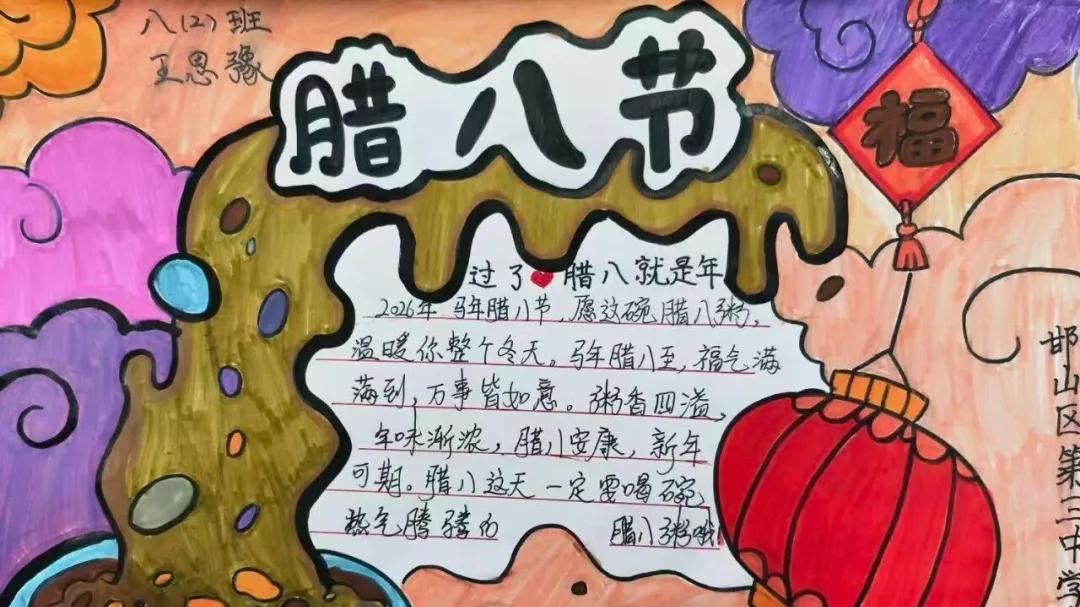 八（2）班
王思豫
腊八节
福
过了腊八就是年
2026年马年腊八节，愿这碗腊八粥，
温暖你整个冬天。马年腊八至，福气满
满到，万事皆如意。粥香四溢，
年味渐浓，腊八安康，新年
可期。腊八这天一定要喝碗
热气腾腾的 腊八粥哦！
邯山区第三中学